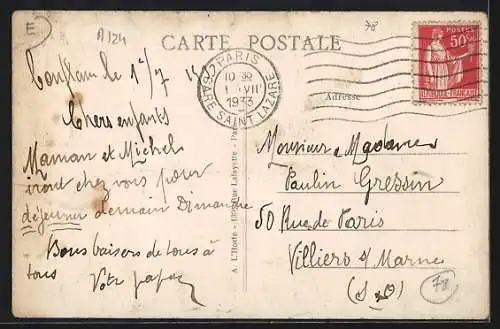 E
A124
78
CARTE POSTALE
PARIS
GARE SAINT LAZARE
10 30
1 VII
1933
POSTES
50c
REPUBLIQUE FRANÇAISE
Adresse
le 1/7
Chers enfants
Maman et Michel
iront chez vous pour
déjeuner demain Dimanche
Bons baisers de tous à
tous
Votre papa
A. L'Hoste - Rue Lafayette - Paris
Monsieur & Madame
Paulin Gressin
50 Rue de Paris
Villiers s/ Marne
(S & O)
78